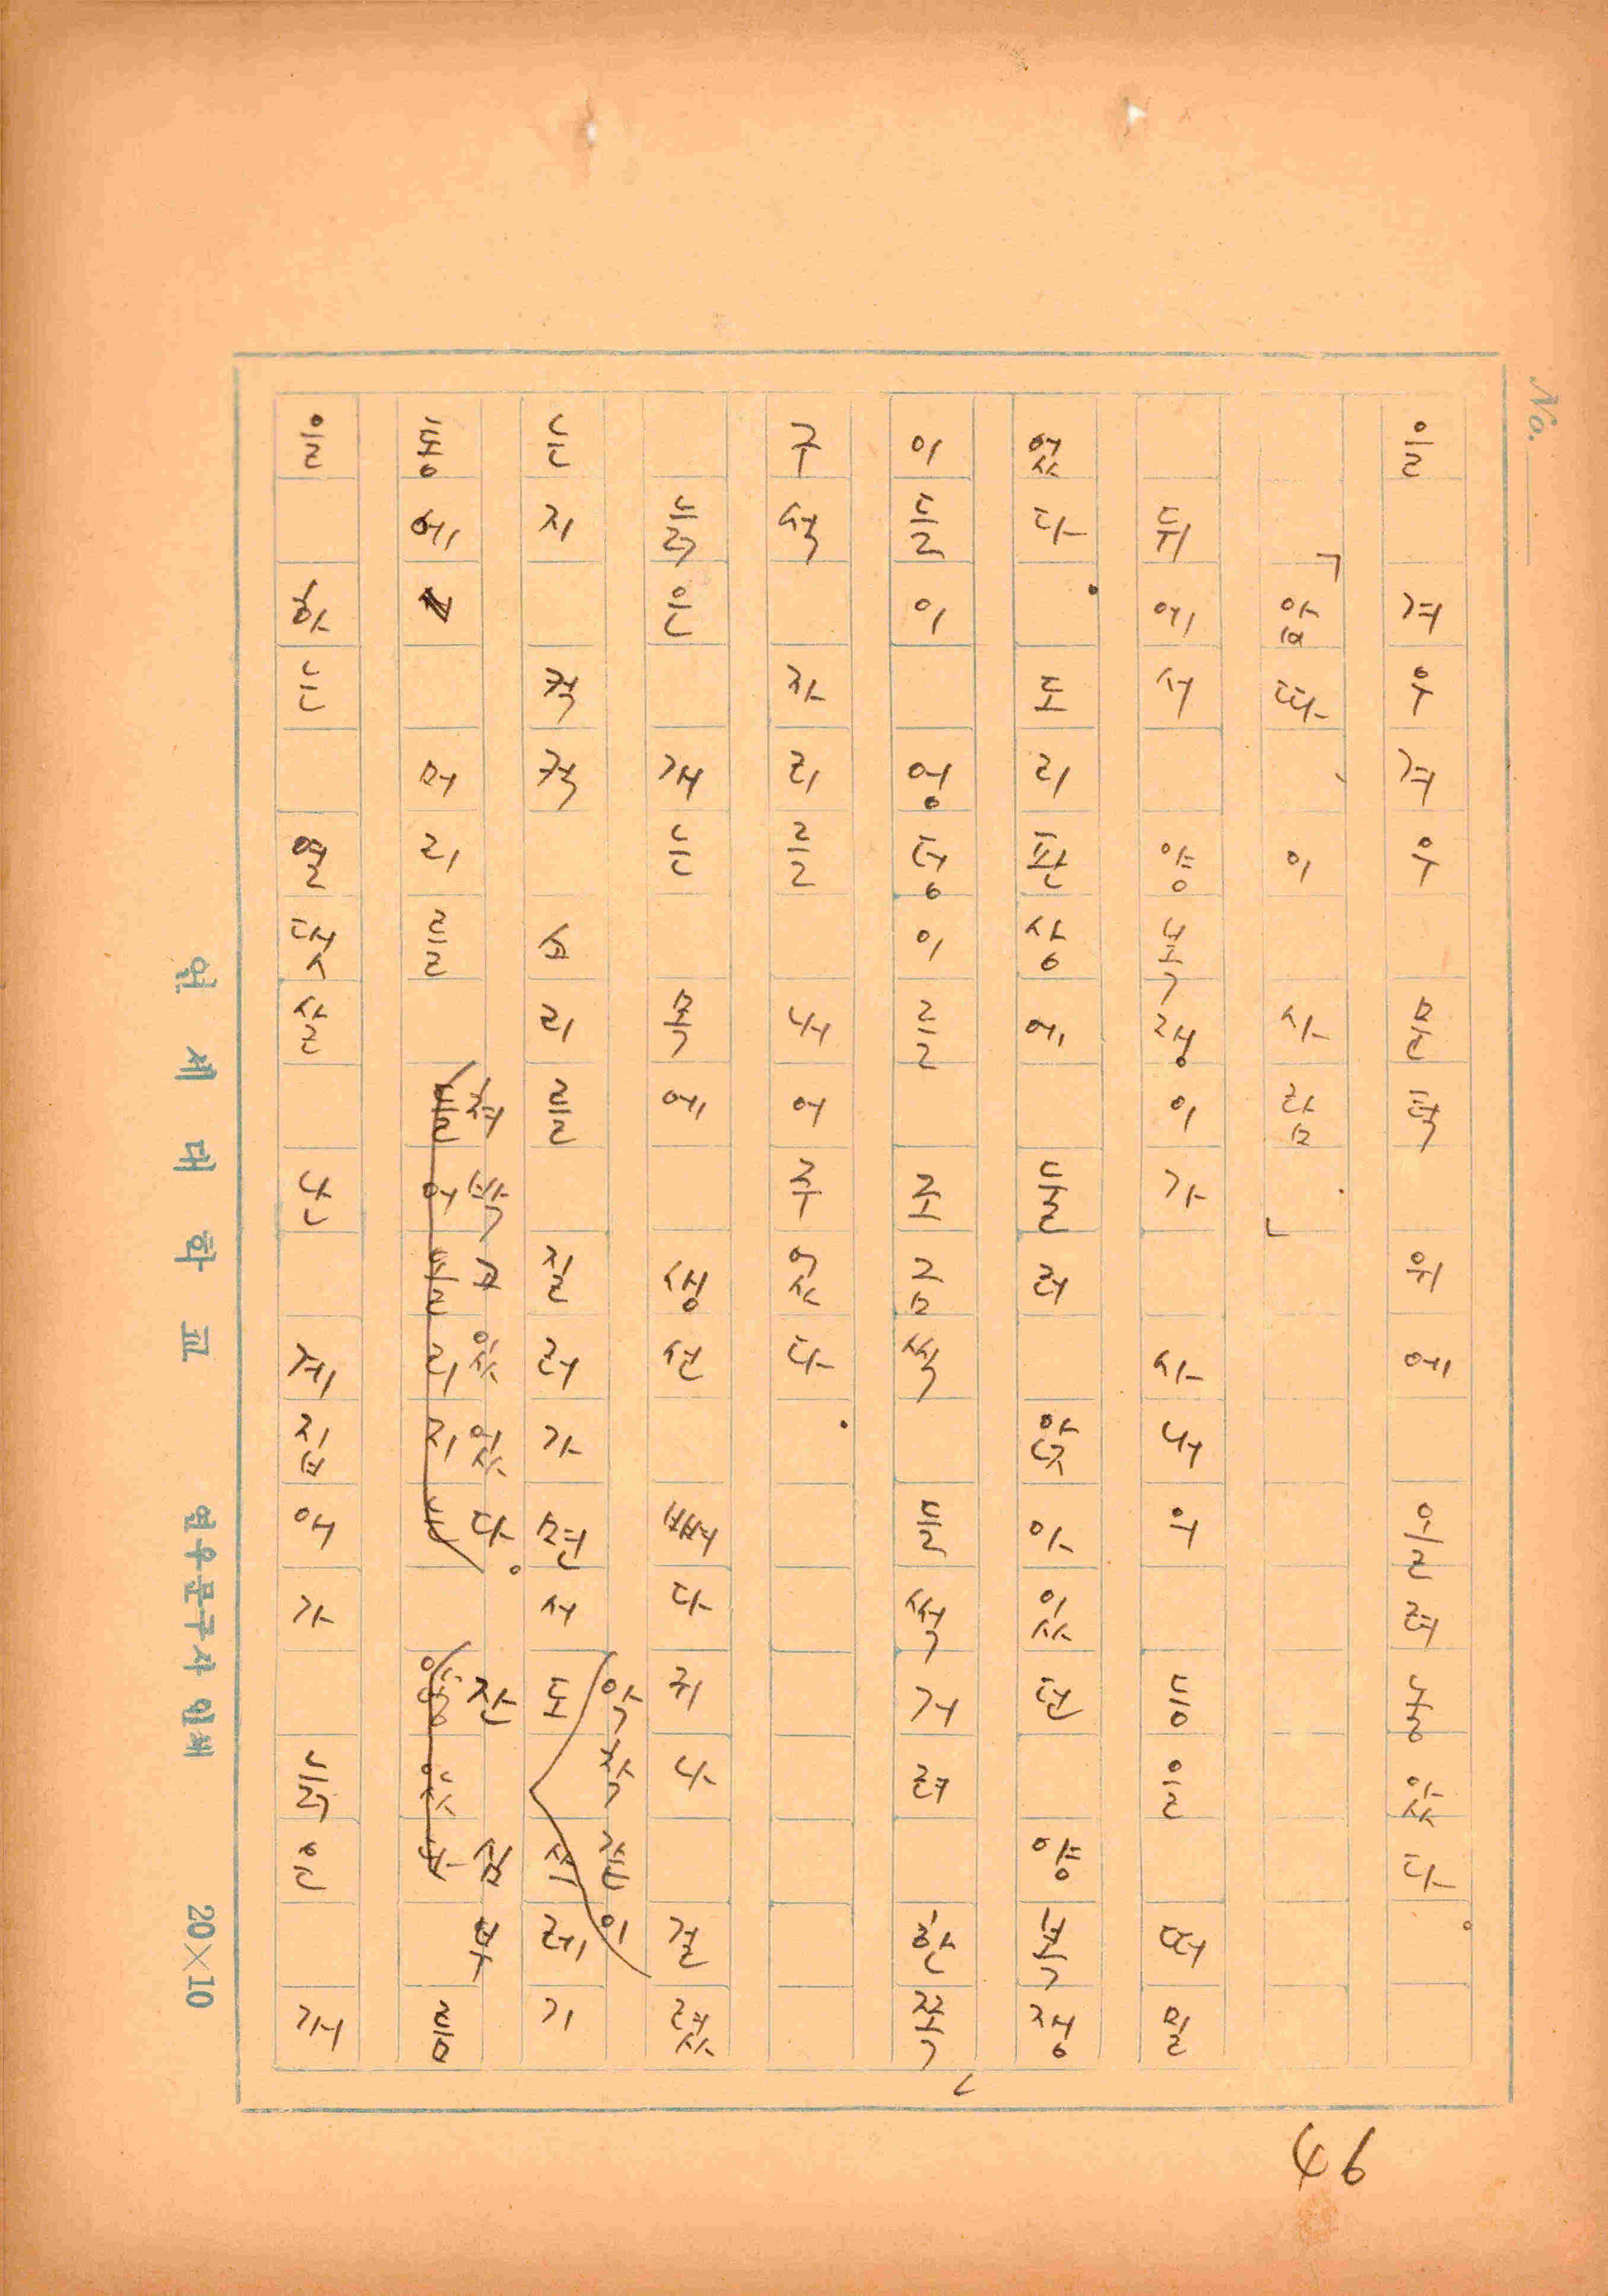 을 겨우겨우 문턱 위에 올려놓았다。
「압따, 이 사람.」
뒤에서 양복쟁이가 사내의 등을 떠밀
었다. 도리판상에 둘러 앉아있던 양복쟁
이들이 엉덩이를 조금씩 들썩거려 한쪽
구석 자리를 내어 주었다.
늙은 개는 목에 생선 뼈다귀나 걸렸
는지 컥컥 소리를 질러가면서도 악착같이 쓰레기
통에 머리를 처박고 있었다。 잔심부름
을 하는 열댓살 난 계집애가 늙은 개
46
No.
연세대학교 연우문구사 인쇄 20×10